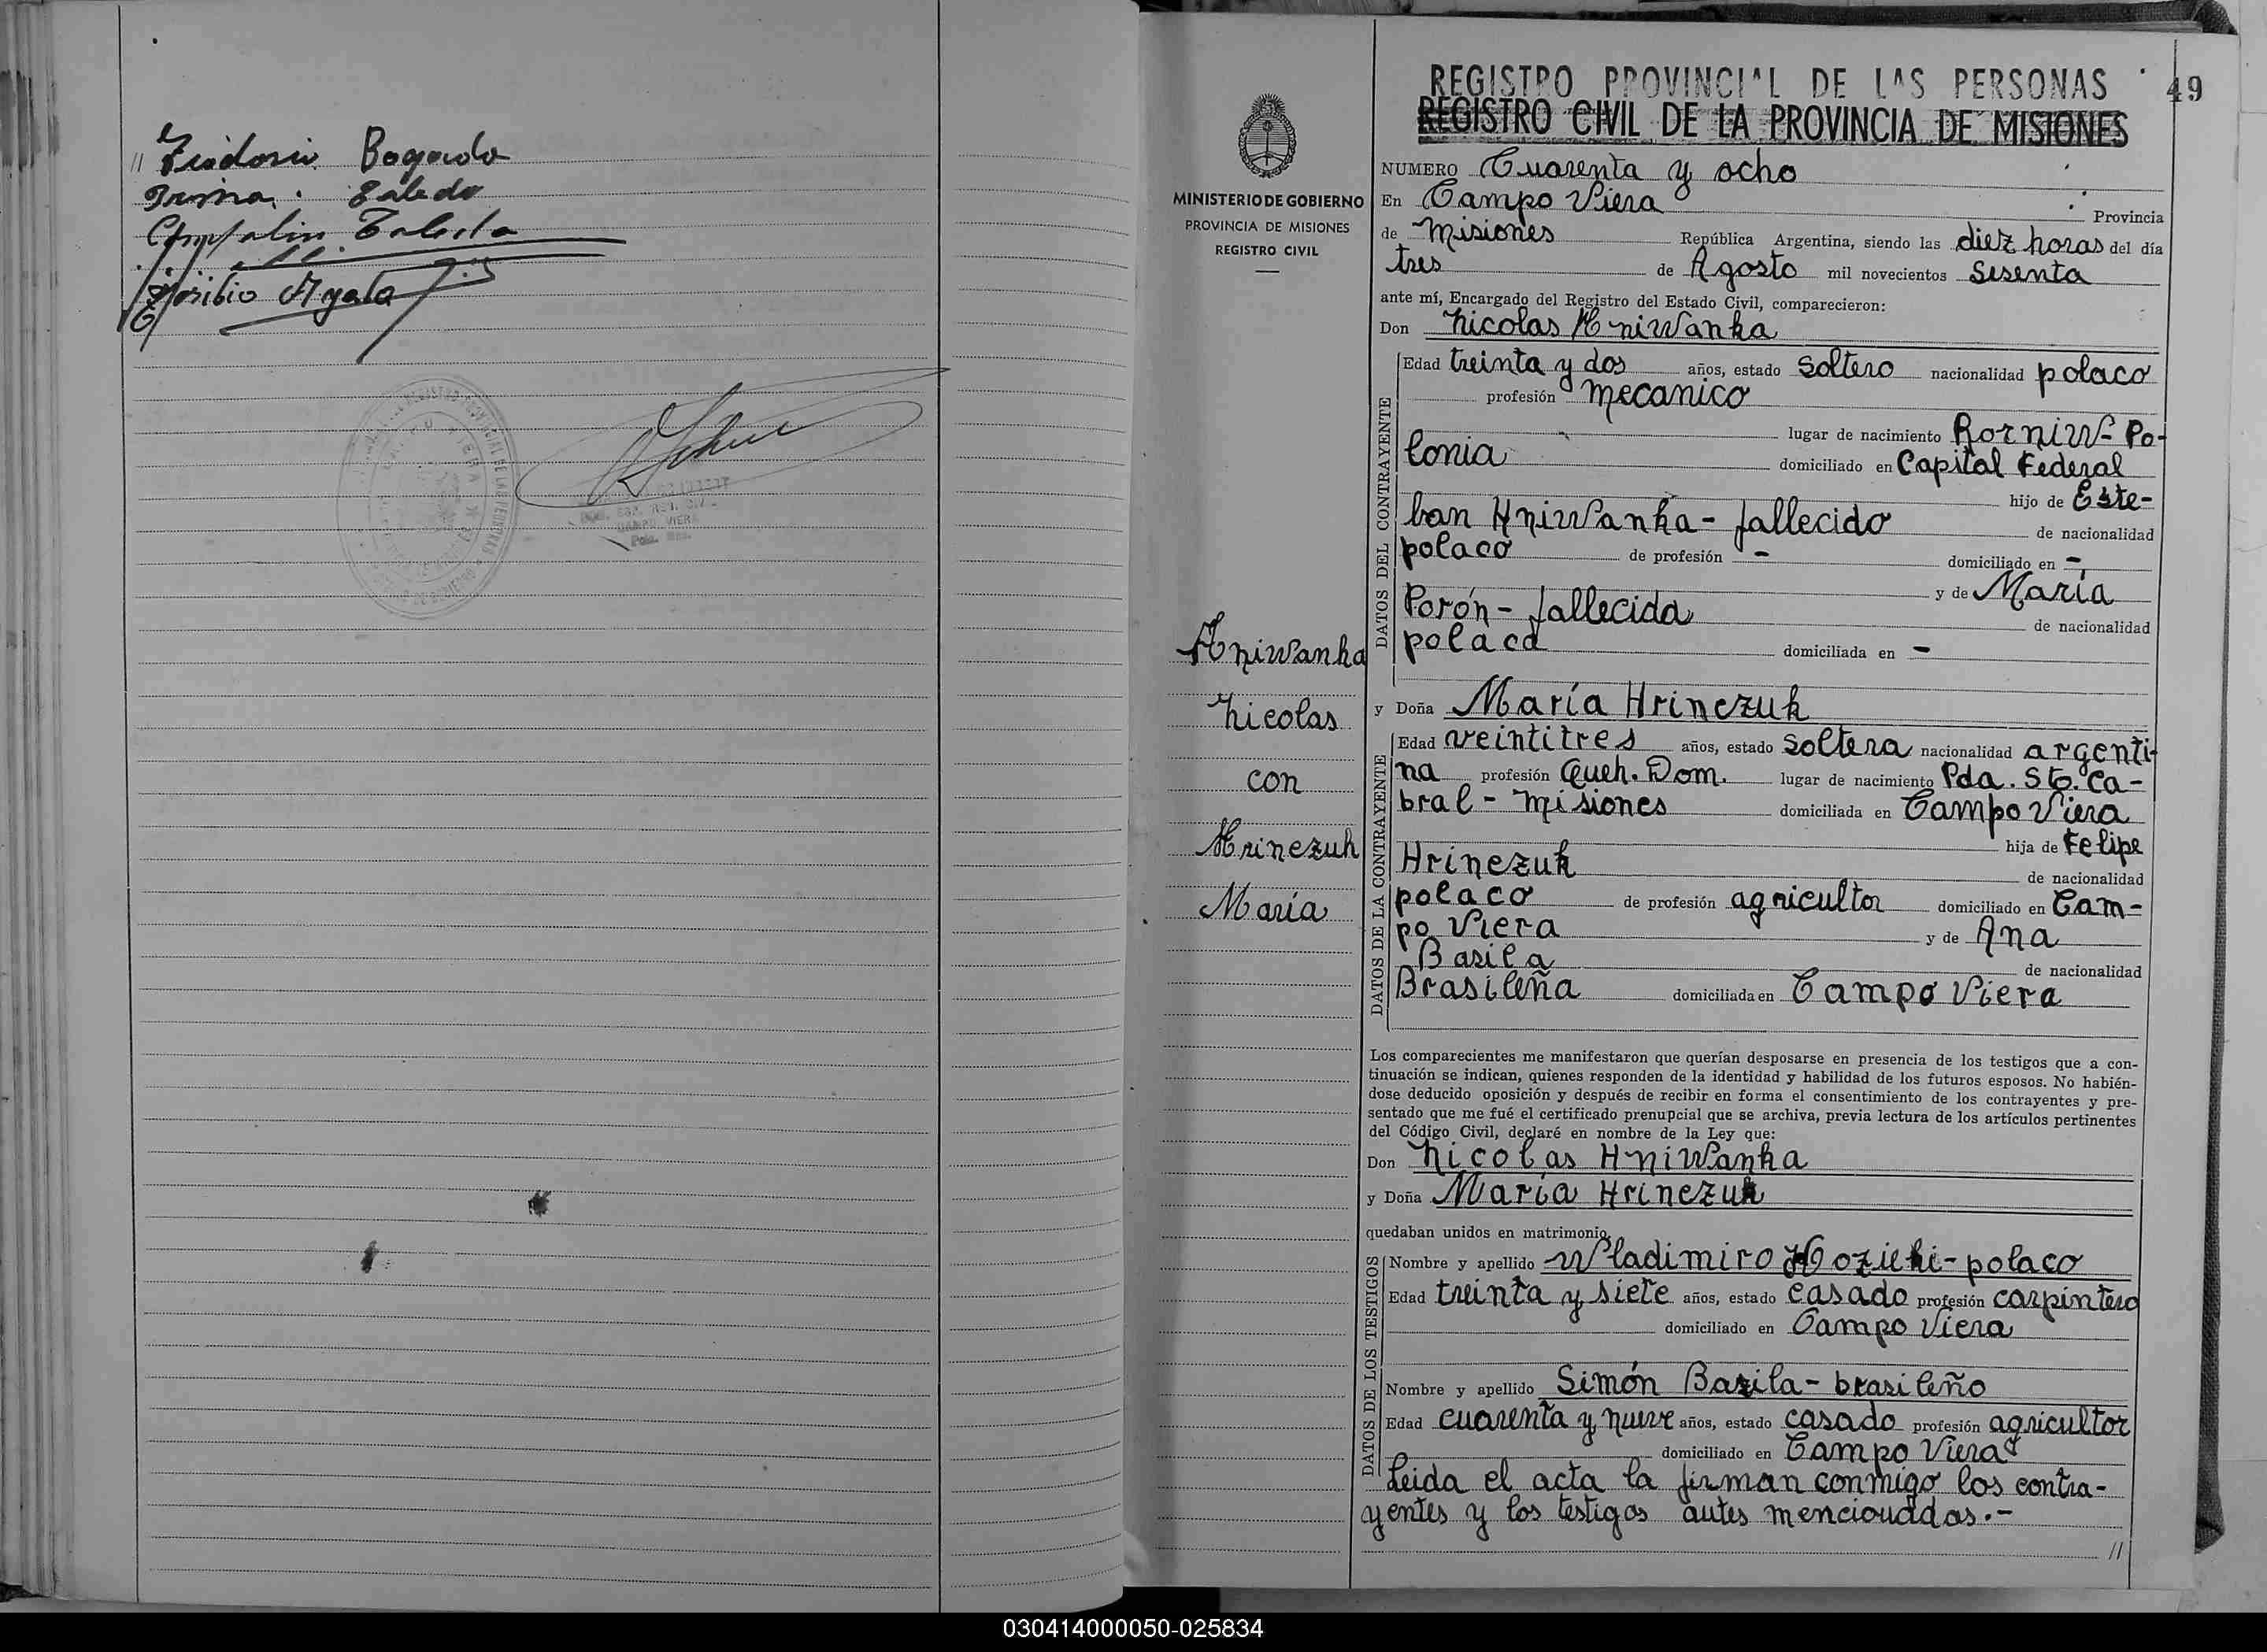 Bogado
Toledo
Toledo
Toribio Ayala
49
REGISTRO PROVINCIAL DE LAS PERSONAS
REGISTRO CIVIL DE LA PROVINCIA DE MISIONES
MINISTERIO DE GOBIERNO
PROVINCIA DE MISIONES
REGISTRO CIVIL
NUMERO Cuarenta y ocho
En Campo Viera Provincia
de Misiones República Argentina, siendo las diez horas del día
tres de Agosto mil novecientos sesenta
ante mí, Encargado del Registro del Estado Civil, comparecieron:
Don Nicolas Hniwanka
DATOS DEL CONTRAYENTE
Edad treinta y dos años, estado soltero nacionalidad polaco
profesión mecanico
lugar de nacimiento Rorniw - Po-
lonia domiciliado en Capital Federal
hijo de Este-
ban Hniwanka - fallecido de nacionalidad
polaco de profesión - domiciliado en -
y de María
Porón - fallecida de nacionalidad
polaca domiciliada en -
Hniwanka
Nicolas
con
Hrinczuk
María
y Doña María Hrinczuk
DATOS DE LA CONTRAYENTE
Edad veintitres años, estado soltera nacionalidad argenti-
na profesión Queh. Dom. lugar de nacimiento Pda. Sto. Ca-
bral - Misiones domiciliada en Campo Viera
hija de Felipe
Hrinczuk de nacionalidad
polaco de profesión agricultor domiciliado en Cam-
po Viera y de Ana
Basila de nacionalidad
Brasileña domiciliada en Campo Viera
Los comparecientes me manifestaron que querían desposarse en presencia de los testigos que a con-
tinuación se indican, quienes responden de la identidad y habilidad de los futuros esposos. No habién-
dose deducido oposición y después de recibir en forma el consentimiento de los contrayentes y pre-
sentado que me fué el certificado prenupcial que se archiva, previa lectura de los artículos pertinentes
del Código Civil, declaré en nombre de la Ley que:
Don Nicolas Hniwanka
y Doña María Hrinczuk
quedaban unidos en matrimonio.
DATOS DE LOS TESTIGOS
Nombre y apellido Wladimiro Kozicki - polaco
Edad treinta y siete años, estado casado profesión carpintero
domiciliado en Campo Viera
Nombre y apellido Simón Bazila - brasileño
Edad cuarenta y nueve años, estado casado profesión agricultor
domiciliado en Campo Viera
Leida el acta la firman conmigo los contra-
yentes y los testigos antes mencionados.-
//
030414000050-025834